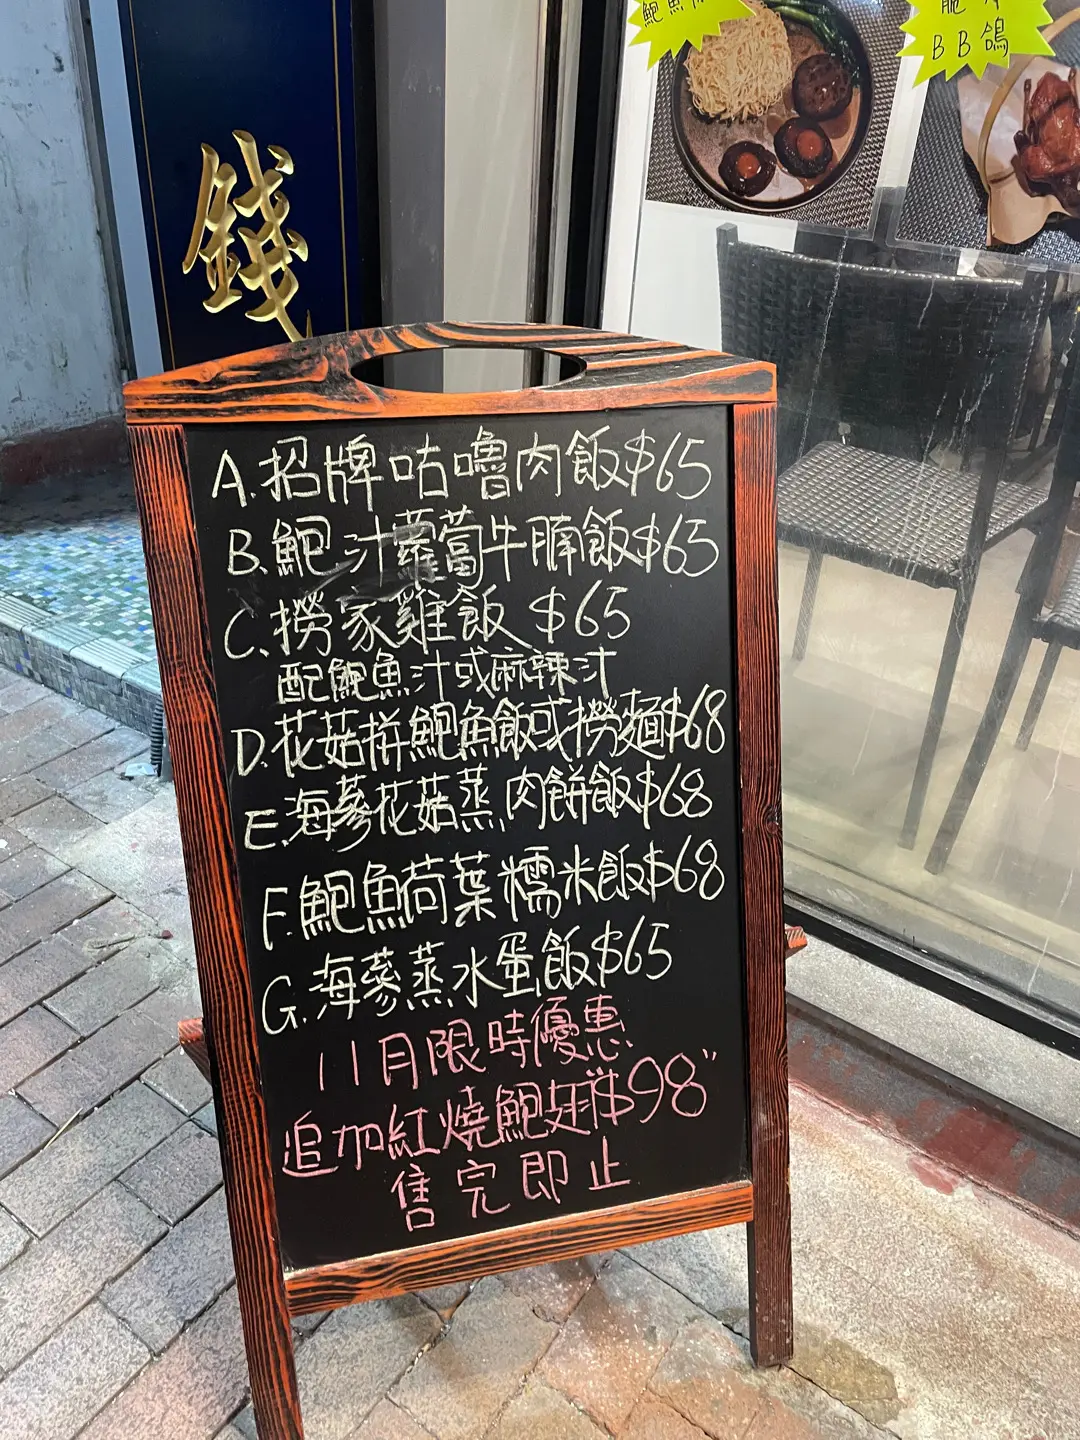 錢
BB鴿
A.招牌咕嚕肉飯$65
B.鮑汁蘿蔔牛腩飯$65
C.撈家雞飯 $65
配鮑魚汁或麻辣汁
D.花菇拼鮑魚飯或撈麵$68
E.海參花菇蒸肉餅飯$68
F.鮑魚荷葉糯米飯$68
G.海參蒸水蛋飯$65
11月限時優惠
追加紅燒鮑翅$98"
售完即止